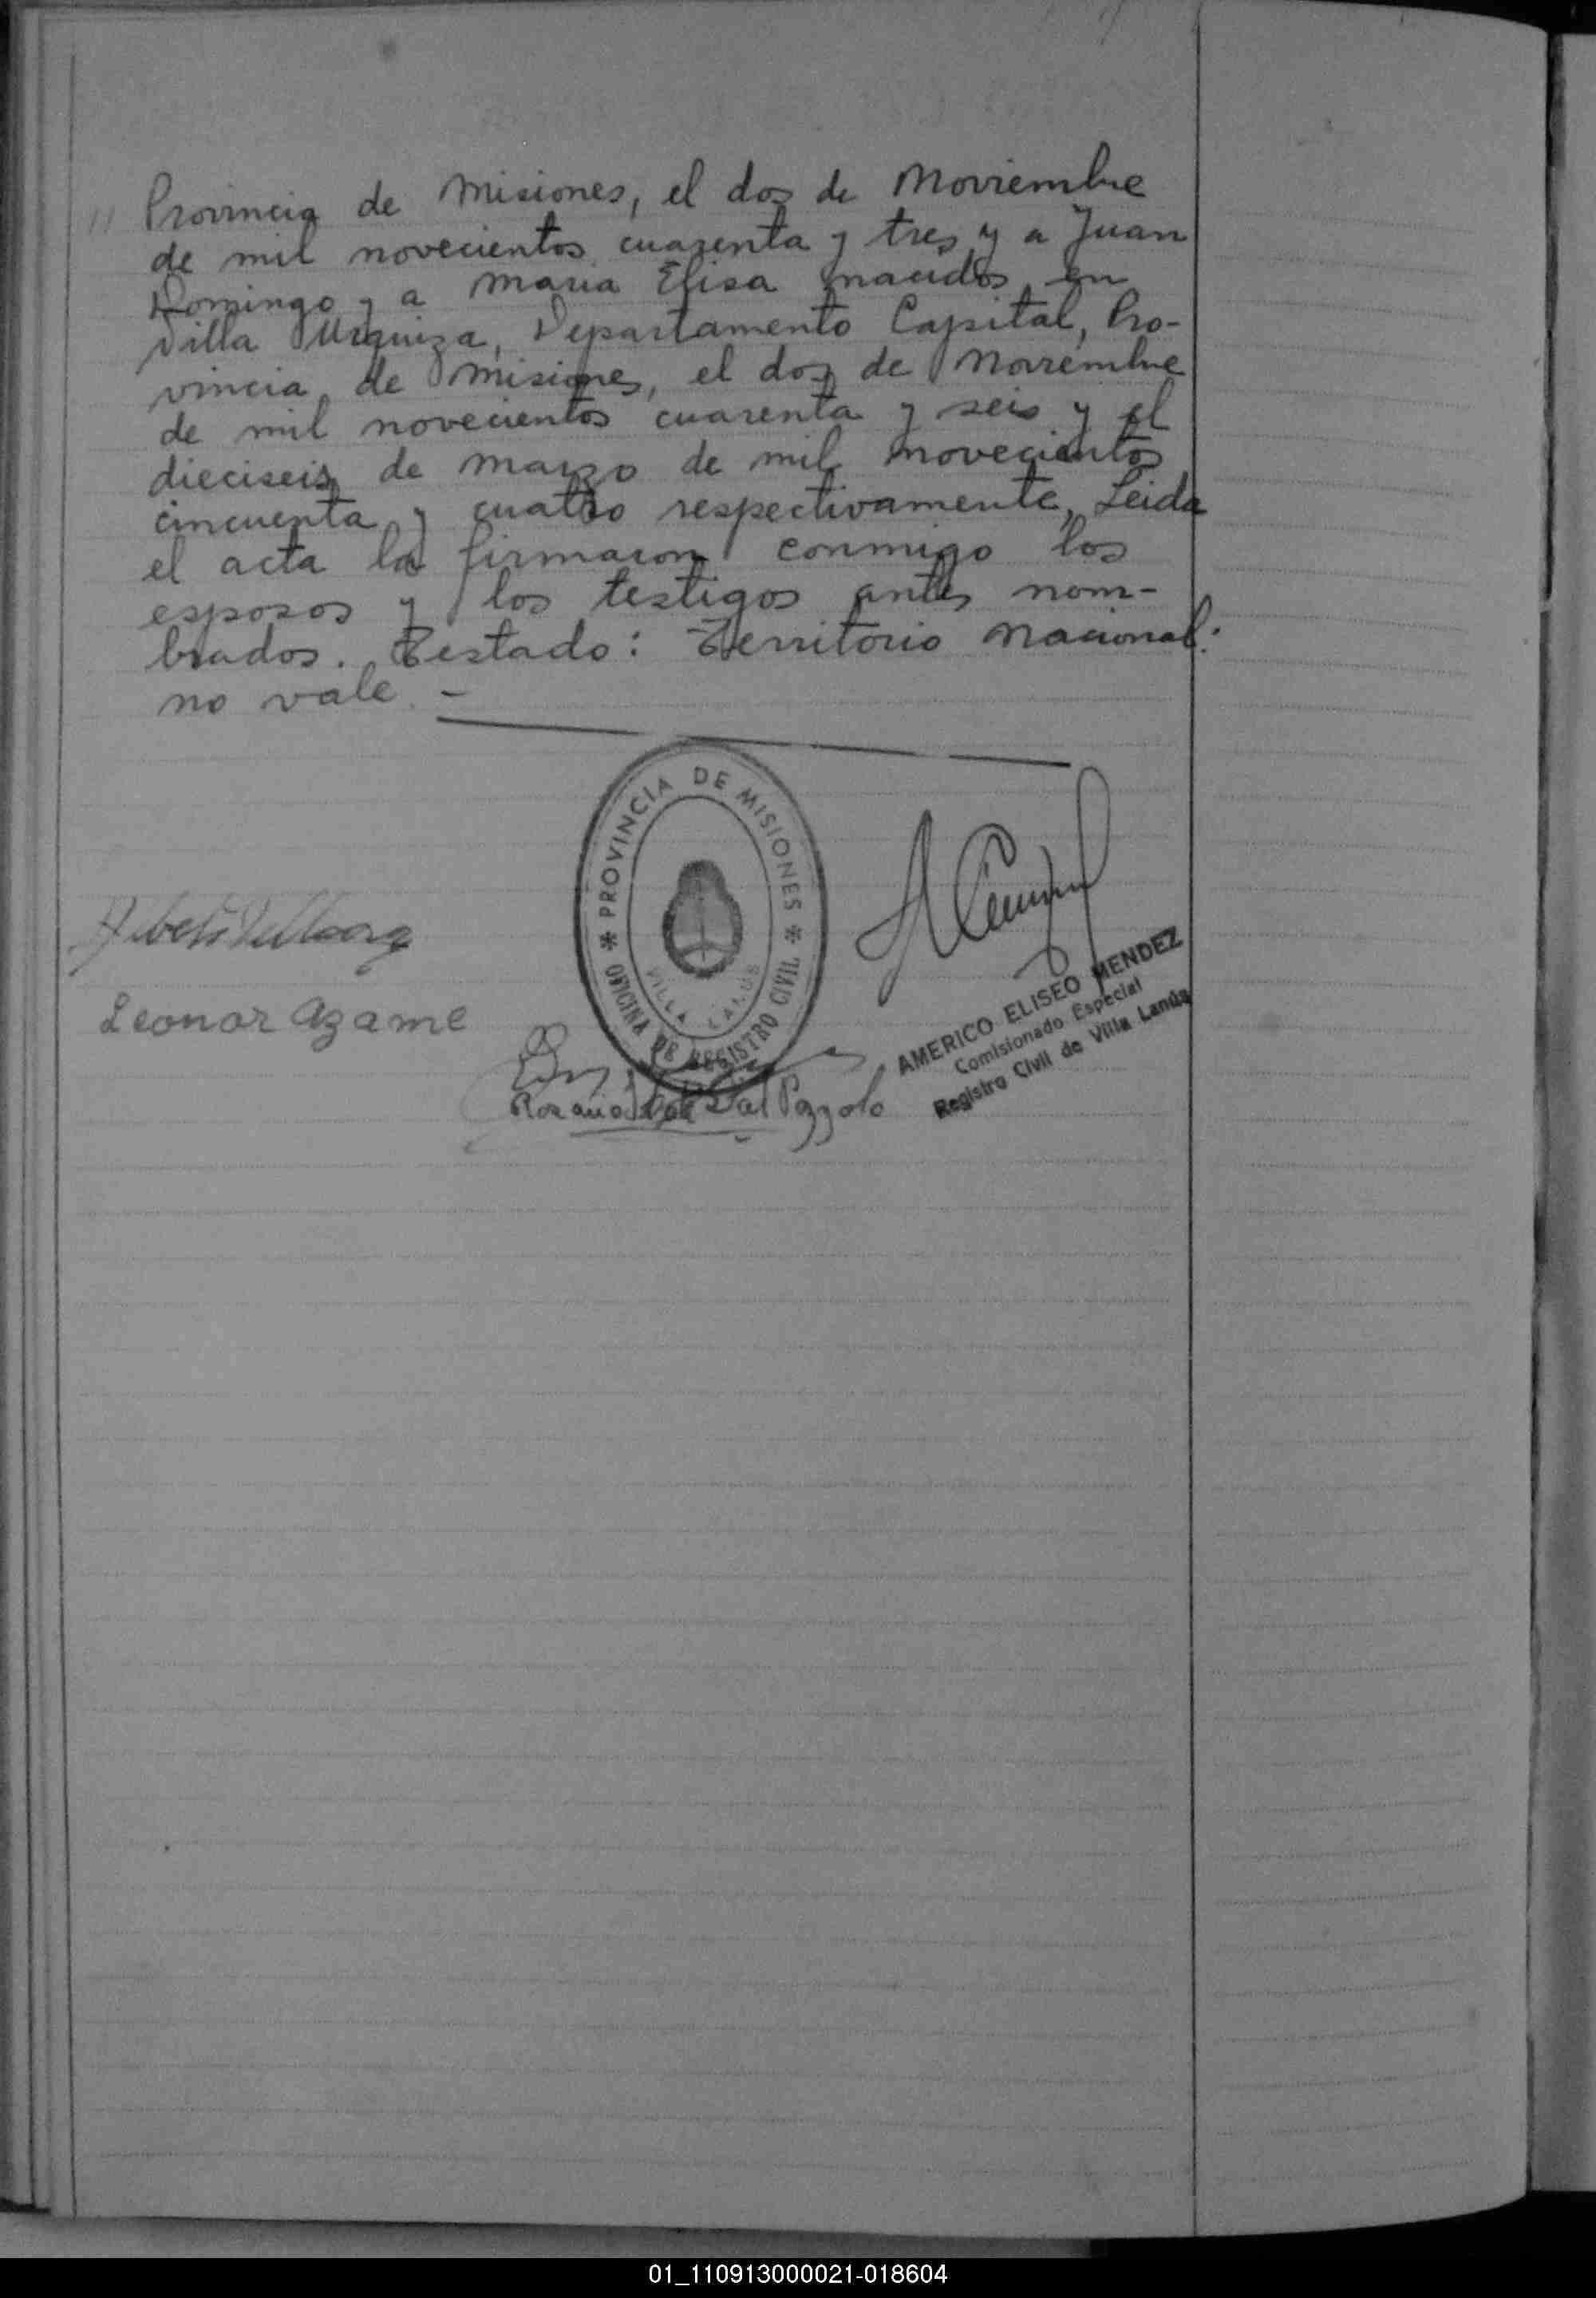 // Provincia de Misiones, el dos de Noviembre
de mil novecientos cuarenta y tres y a Juan
Domingo y a Maria Elisa nacidos en
Villa Urquiza, Departamento Capital, Pro-
vincia de Misiones, el dos de Noviembre
de mil novecientos cuarenta y seis y el
dieciseis de marzo de mil novecientos
cincuenta y cuatro respectivamente, Leida
el acta la firmaron conmigo los
esposos y los testigos antes nom-
brados. Testado: Territorio Nacional:
no vale. -
* PROVINCIA DE MISIONES *
OFICINA DE REGISTRO CIVIL
VILLA LANUS
Leonor Azame
AMERICO ELISEO MENDEZ
Comisionado Especial
Registro Civil de Villa Lanús
Dal Pozzolo
01_110913000021-018604